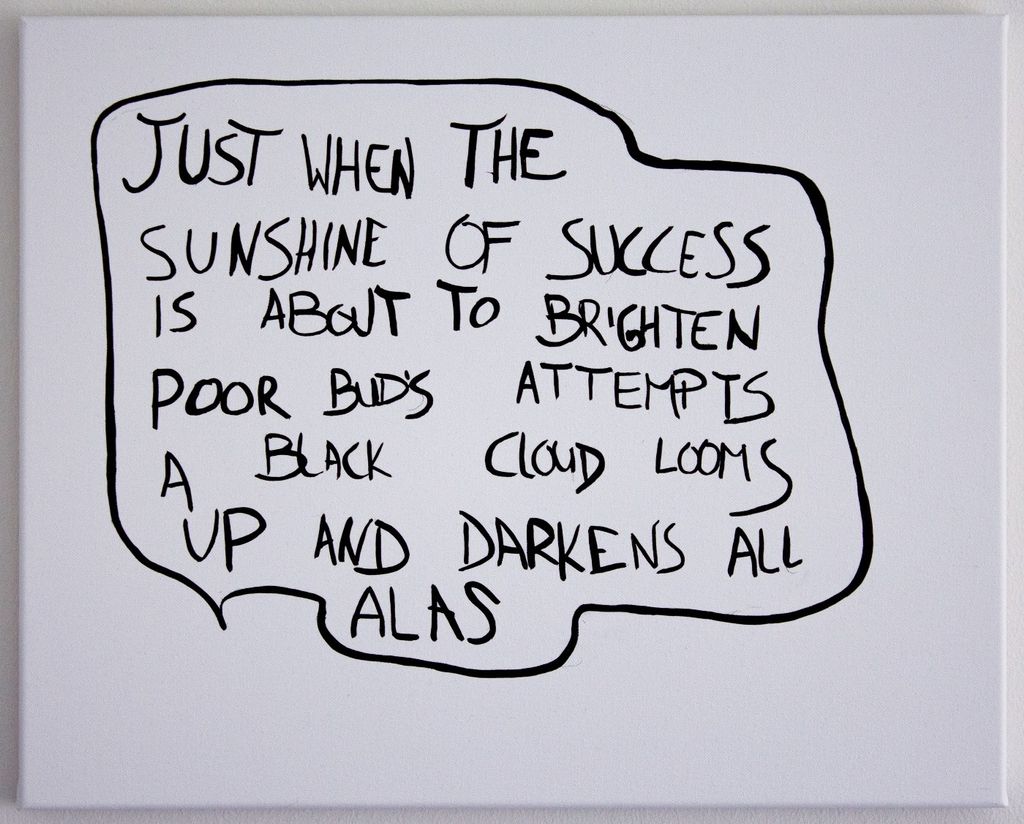 JUST WHEN THE
SUNSHINE OF SUCCESS
IS ABOUT TO BRIGHTEN
POOR BUD'S ATTEMPTS
A BLACK CLOUD LOOMS
UP AND DARKENS ALL
ALAS